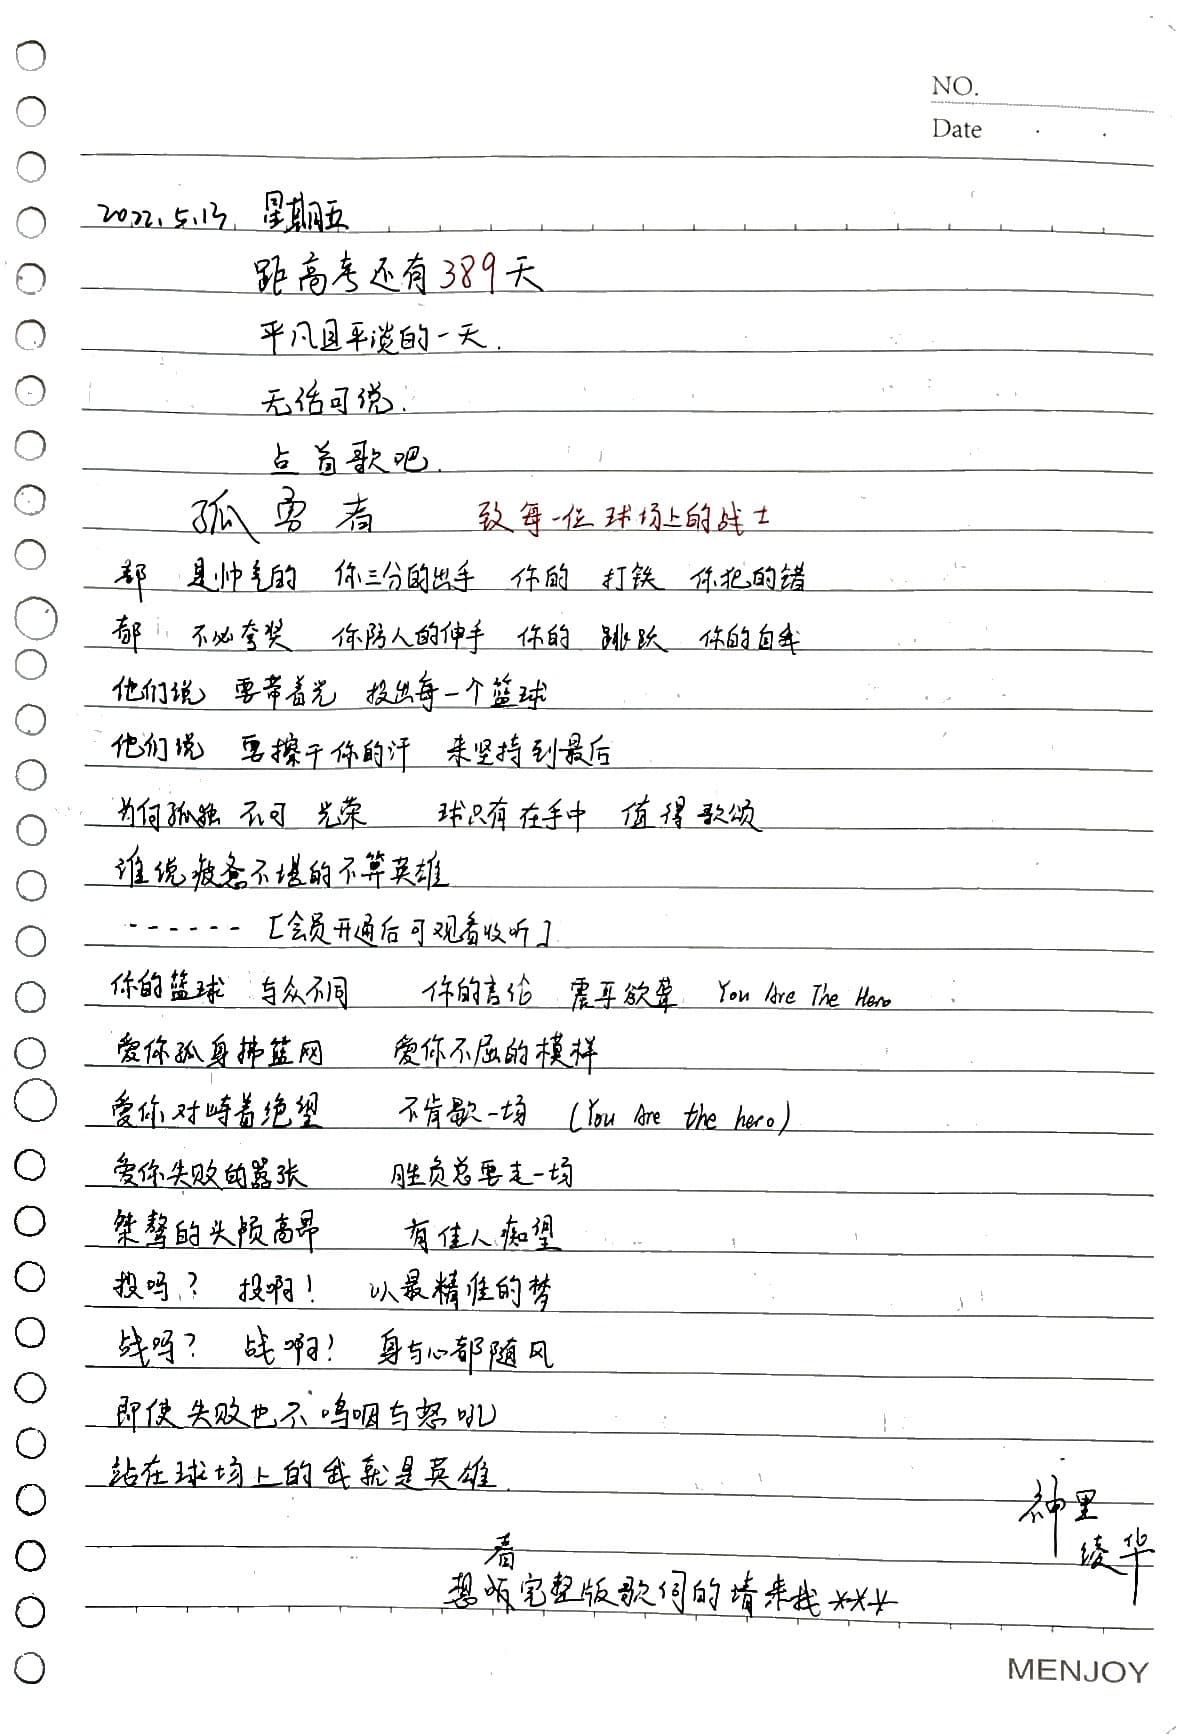 NO.
Date
2022.5.13. 星期五
距高考还有389天
平凡且平淡的一天.
无话可说.
占首歌吧.
孤勇者 致每一位球场上的战士
都 是帅气的 你三分的出手 你的 打铁 你犯的错
都 不必夸奖 你防人的伸手 你的 跳跃 你的自我
他们说 要带着光 投出每一个篮球
他们说 要擦干你的汗 来坚持到最后
为何孤独 不可 光荣 球只有在手中 值得歌颂
谁说疲惫不堪的不算英雄
------ [会员开通后可观看收听]
你的篮球 与众不同 你的言论 震耳欲聋 You Are The Hero
爱你孤身拂篮网 爱你不屈的模样
爱你对峙着绝望 不肯歇一场 (You Are the hero)
爱你失败的嚣张 胜负总要走一场
桀骜的头颅高昂 有佳人痴望
投吗? 投啊! 以最精准的梦
战吗? 战啊! 身与心都随风
即使失败也不呜咽与怒吼
站在球场上的我就是英雄.
神里
绫华
看
想听完整版歌词的请来找***
MENJOY